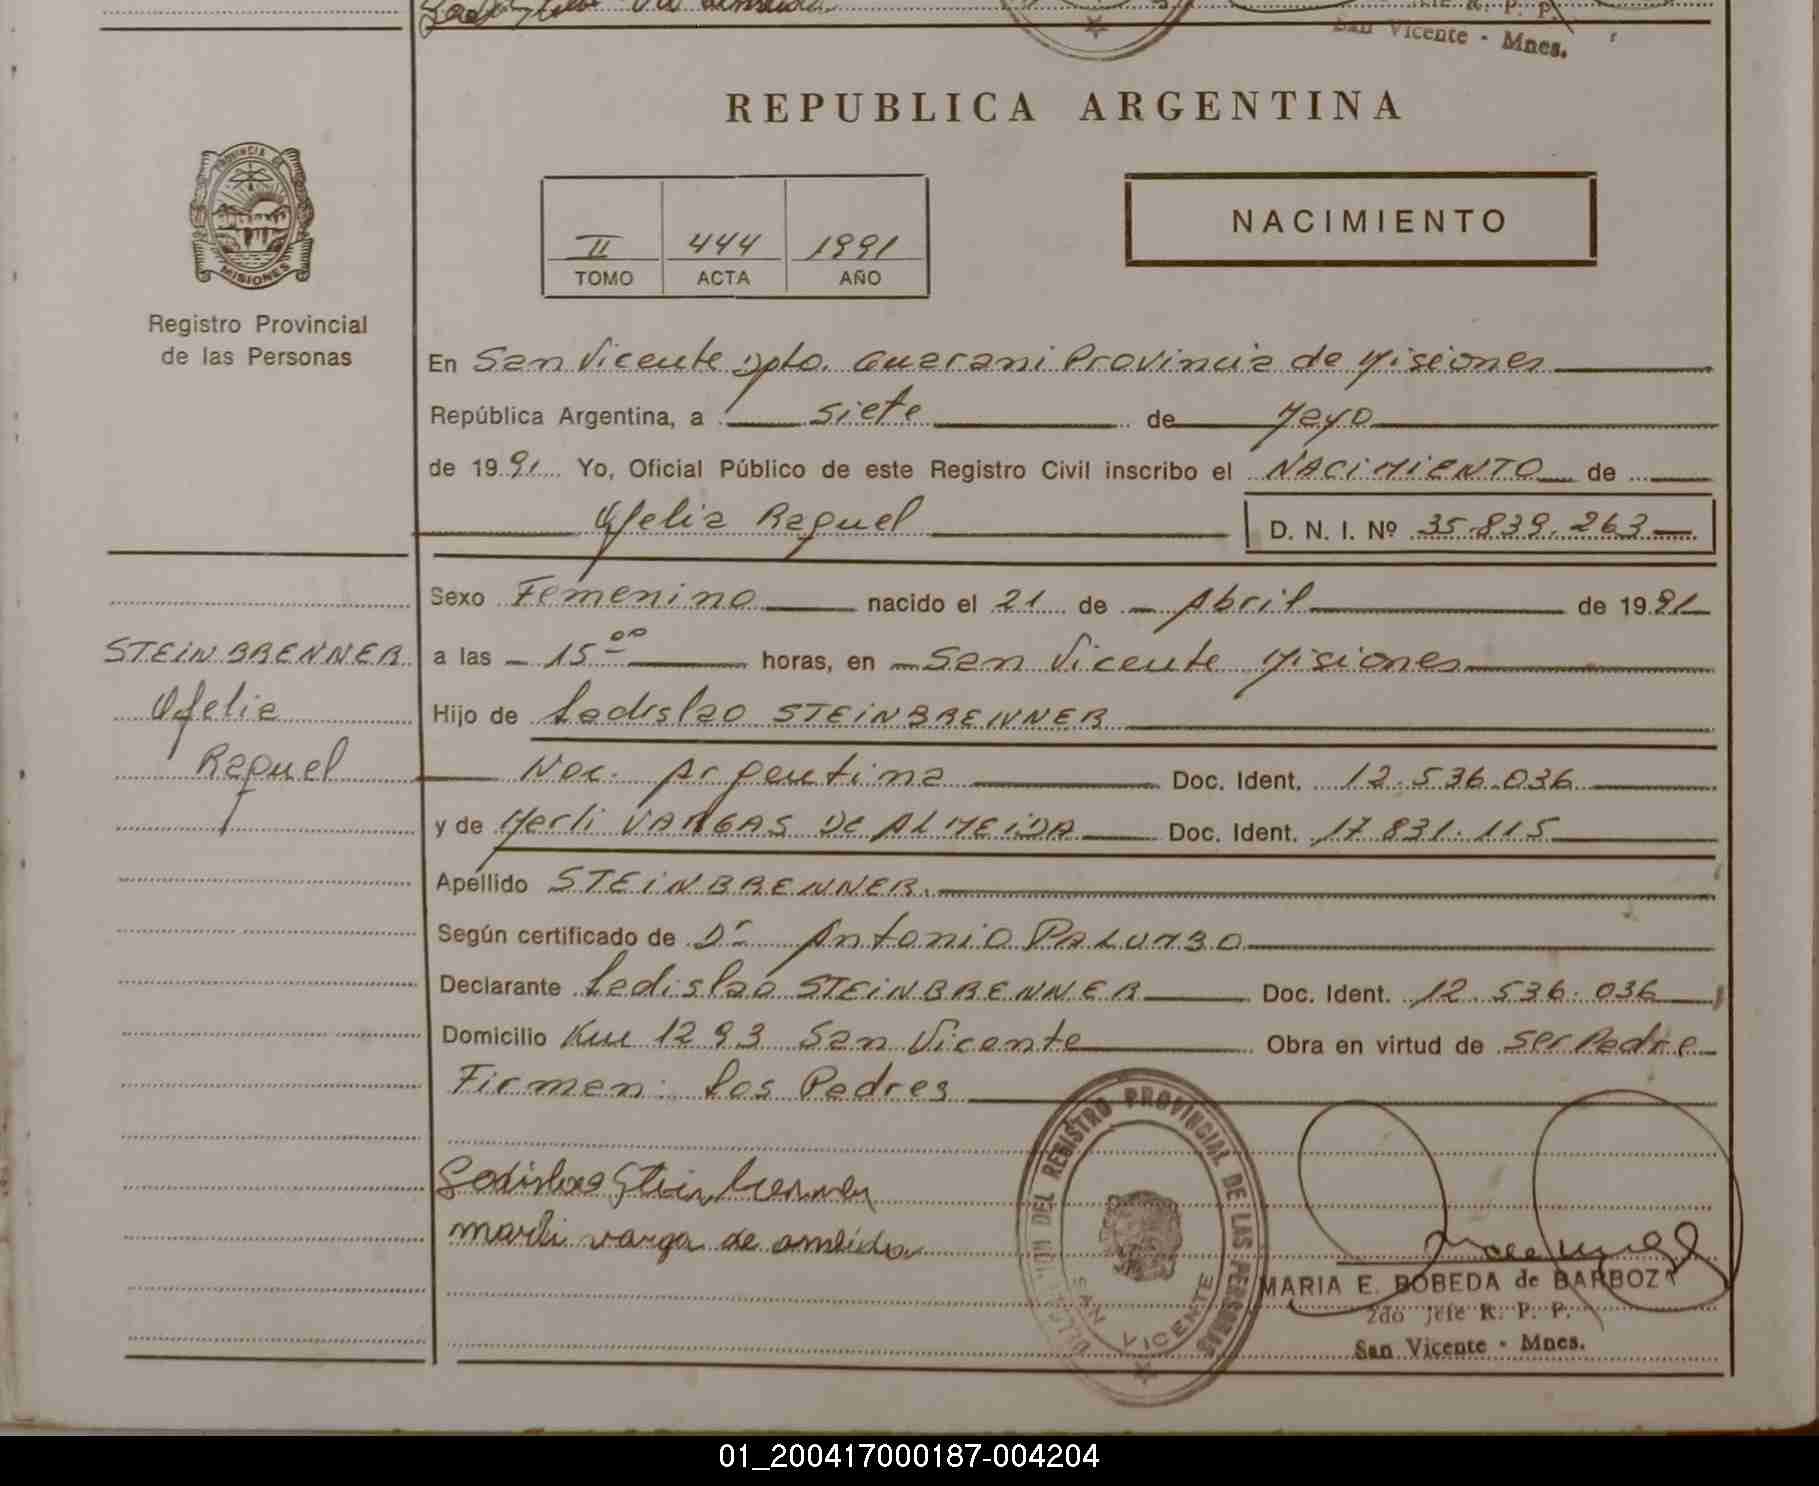 San Vicente - Mnes.
REPUBLICA ARGENTINA
PROVINCIA DE
MISIONES
Registro Provincial
de las Personas
II 444 1991
TOMO ACTA AÑO
NACIMIENTO
En San Vicente Dpto. Guarani Provincia de Misiones
República Argentina, a siete de Mayo
de 1991 Yo, Oficial Público de este Registro Civil inscribo el NACIMIENTO de
Ofelia Raquel D. N. I. Nº 35.839.263
Sexo Femenino nacido el 21 de Abril de 1991
STEINBRENNER a las 15 00 horas, en San Vicente Misiones
Ofelia Hijo de Ladislao STEINBRENNER
Raquel Nac. Argentina Doc. Ident. 12.536.036
y de Merli VARGAS DE ALMEIDA Doc. Ident. 17.831.115
Apellido STEINBRENNER.
Según certificado de Dr Antonio PALUMBO
Declarante Ladislao STEINBRENNER Doc. Ident. 12.536.036
Domicilio Km 1293 San Vicente Obra en virtud de ser Padre
Firman: los Padres
Ladislao Steinbrenner
marli varga de ameida
DEL REGISTRO PROVINCIAL DE LAS PERSONAS
SAN VICENTE
MARIA E. BOBEDA de BARBOZA
2do Jefe R. P. P.
San Vicente - Mnes.
01_200417000187-004204